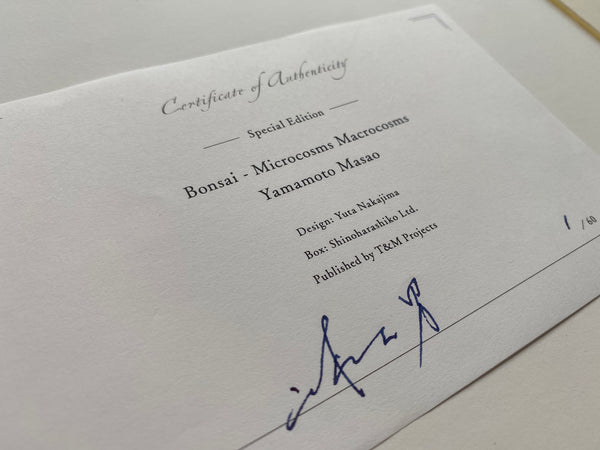 Certificate of Authenticity
Special Edition
Bonsai - Microcosms Macrocosms
Yamamoto Masao
Design: Yuta Nakajima
Box: Shinoharashiko Ltd.
Published by T&M Projects
1 / 60